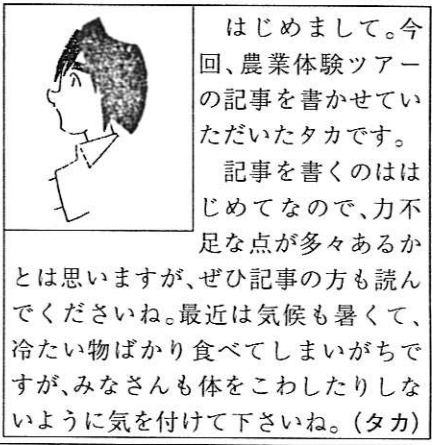 はじめまして。今
回、農業体験ツアー
の記事を書かせてい
ただいたタカです。
記事を書くのはは
じめてなので、力不
足な点が多々あるか
とは思いますが、ぜひ記事の方も読ん
でくださいね。最近は気候も暑くて、
冷たい物ばかり食べてしまいがちで
すが、みなさんも体をこわしたりしな
いように気を付けて下さいね。(タカ)